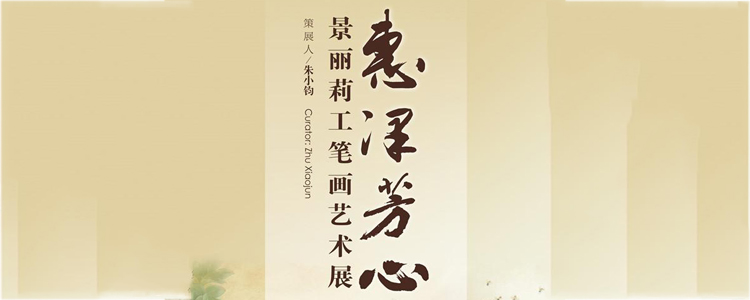 惠泽芳心
景丽莉工笔画艺术展
策展人/朱小钧 Curator: Zhu Xiaojun